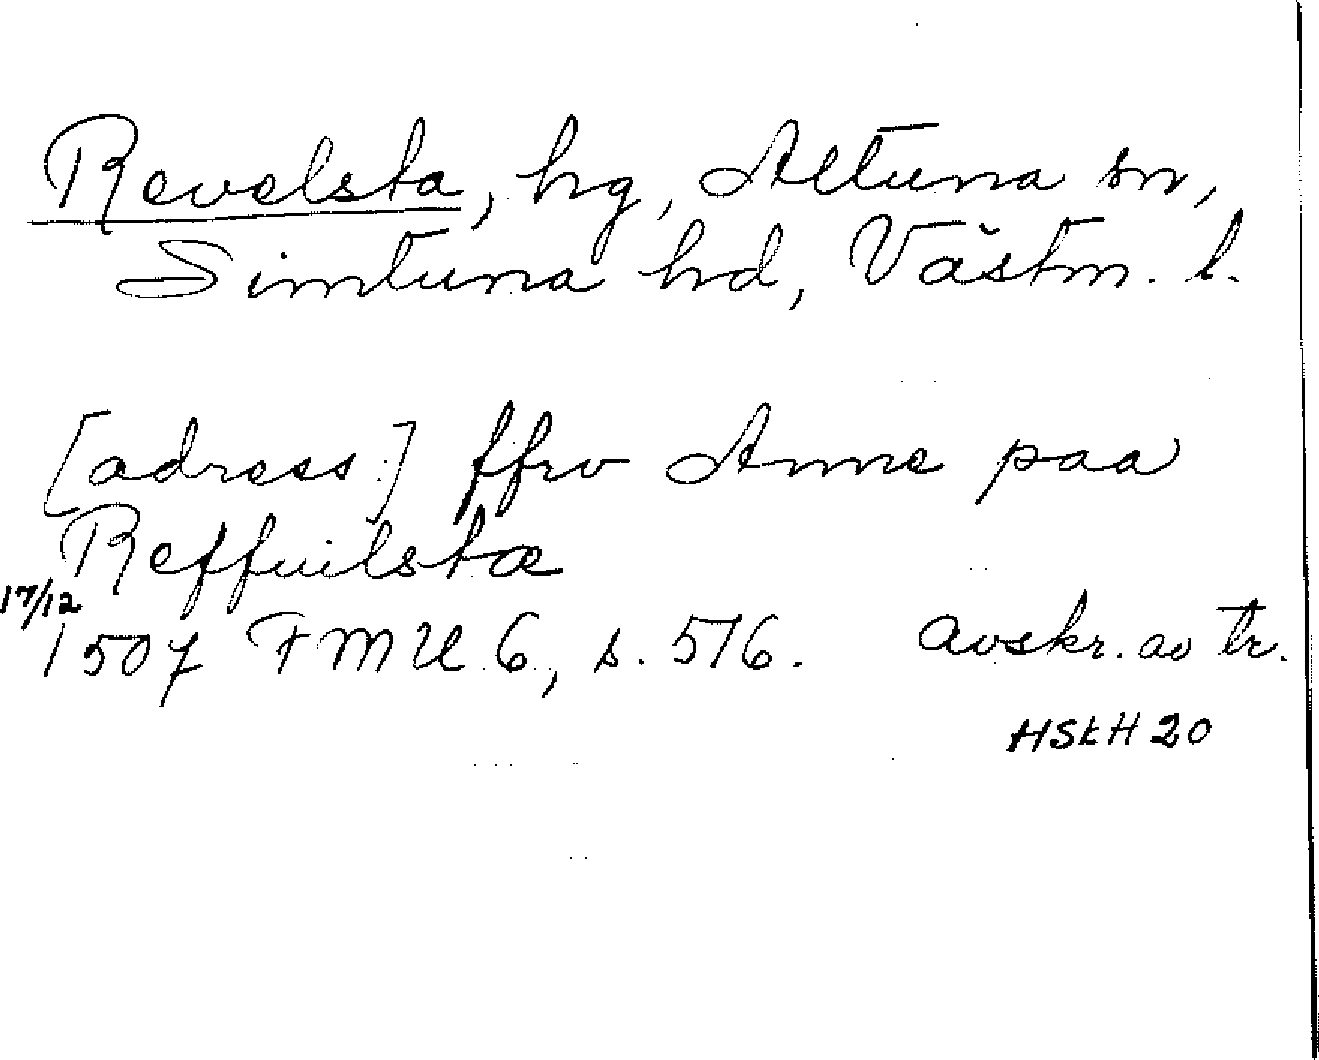 Revelsta, hg, Altuna sn,
Simtuna hd, Västm. l.
[adress:] ffrv Anne paa
Reffuilstæ
17/12
1507 FMU 6, s. 516. Avskr. av tr.
HSkH 20